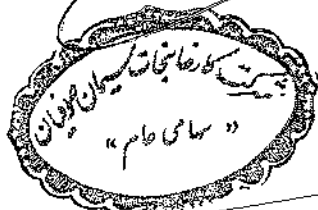 شرکت کارخانجات سیمان صوفیان
" سهامی عام "